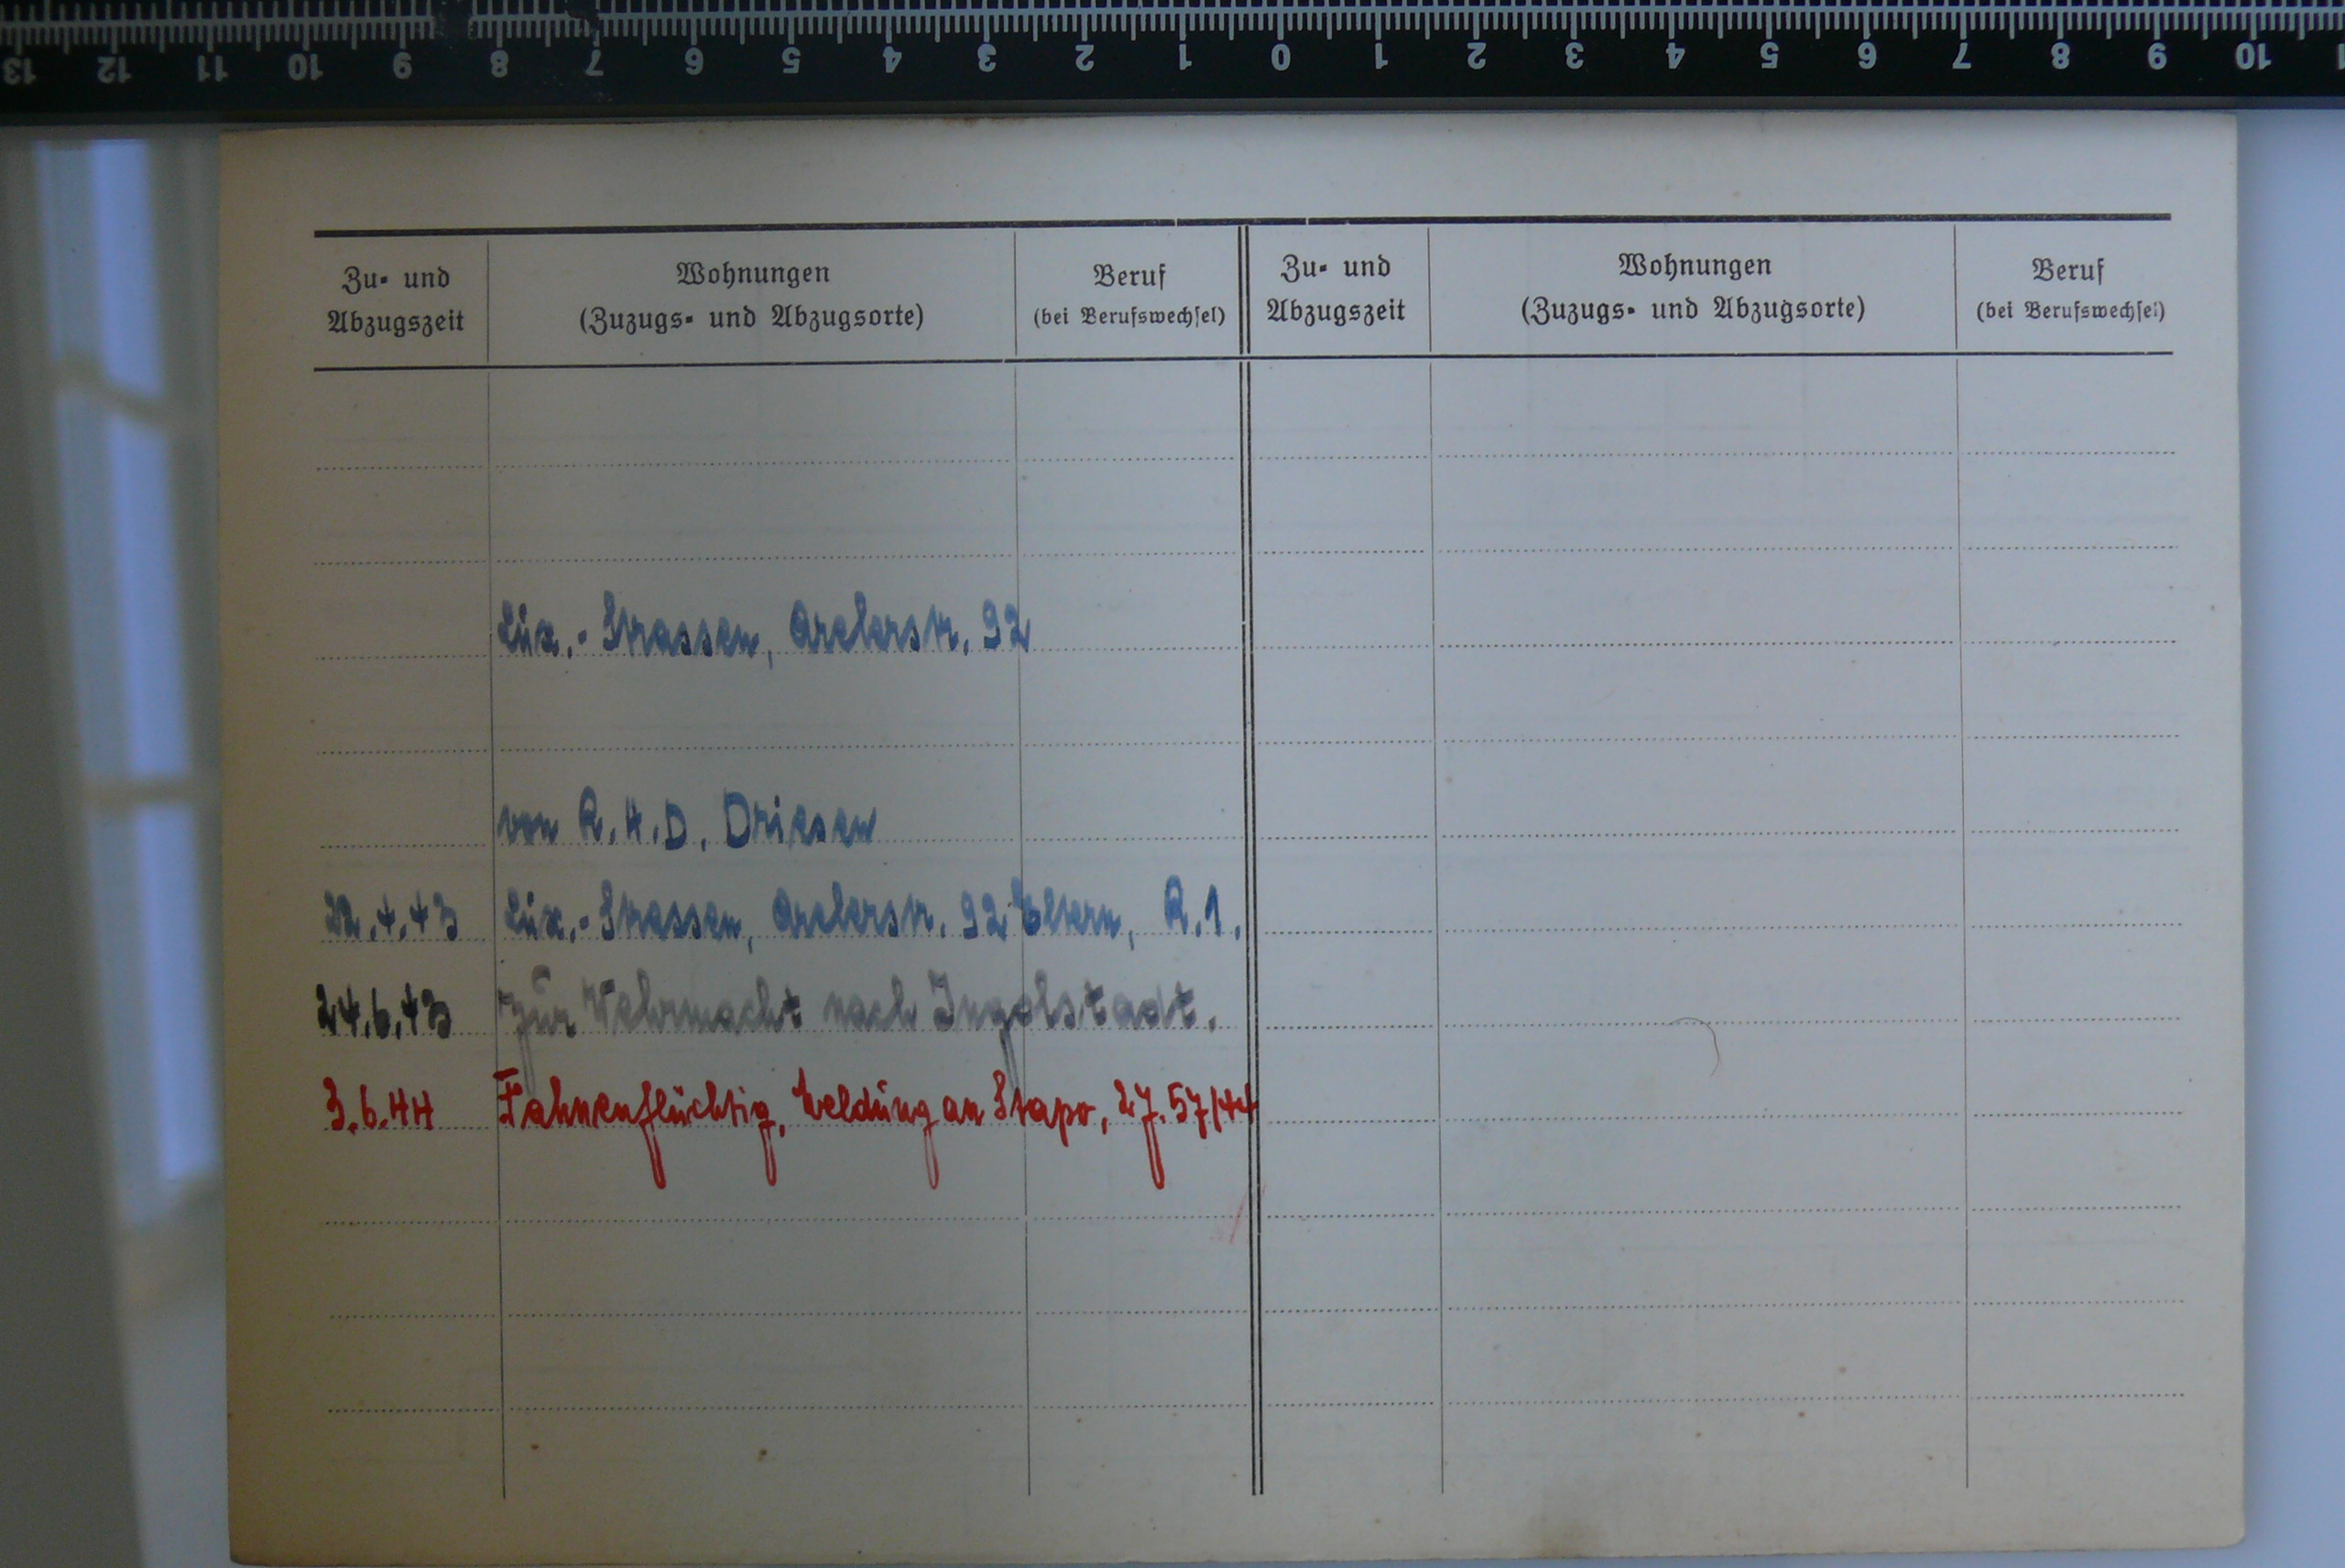 13 12 11 10 9 8 7 6 5 4 3 2 1 0 1 2 3 4 5 6 7 8 9 10
Zu- und Wohnungen Beruf Zu- und Wohnungen Beruf
Abzugszeit (Zuzugs- und Abzugsorte) (bei Berufswechsel) Abzugszeit (Zuzugs- und Abzugsorte) (bei Berufswechsel)
Lux.- Strassen, Arelerstr. 92
von R.A.D. Driesen
22.4.43 Lux.- Strassen, Arelerstr. 92 Eltern, R.1.
24.6.43 zur Wehrmacht nach Ingolstadt.
3.6.44 Fahnenflüchtig, Meldung an Stapo, 27.57/44